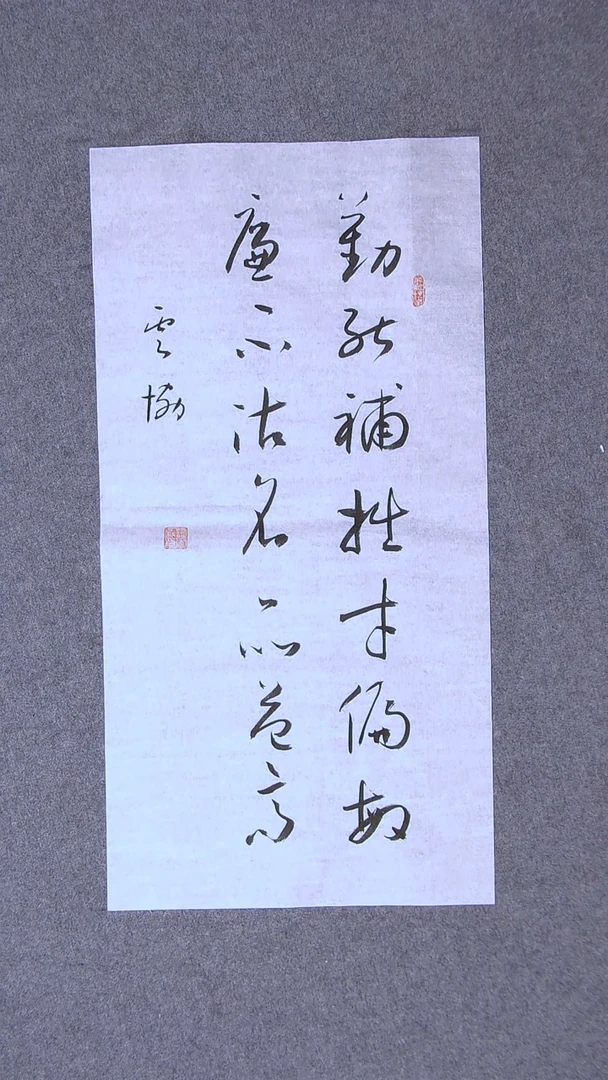 勤能補拙才偏敏
廉不沽名品益高
雲協